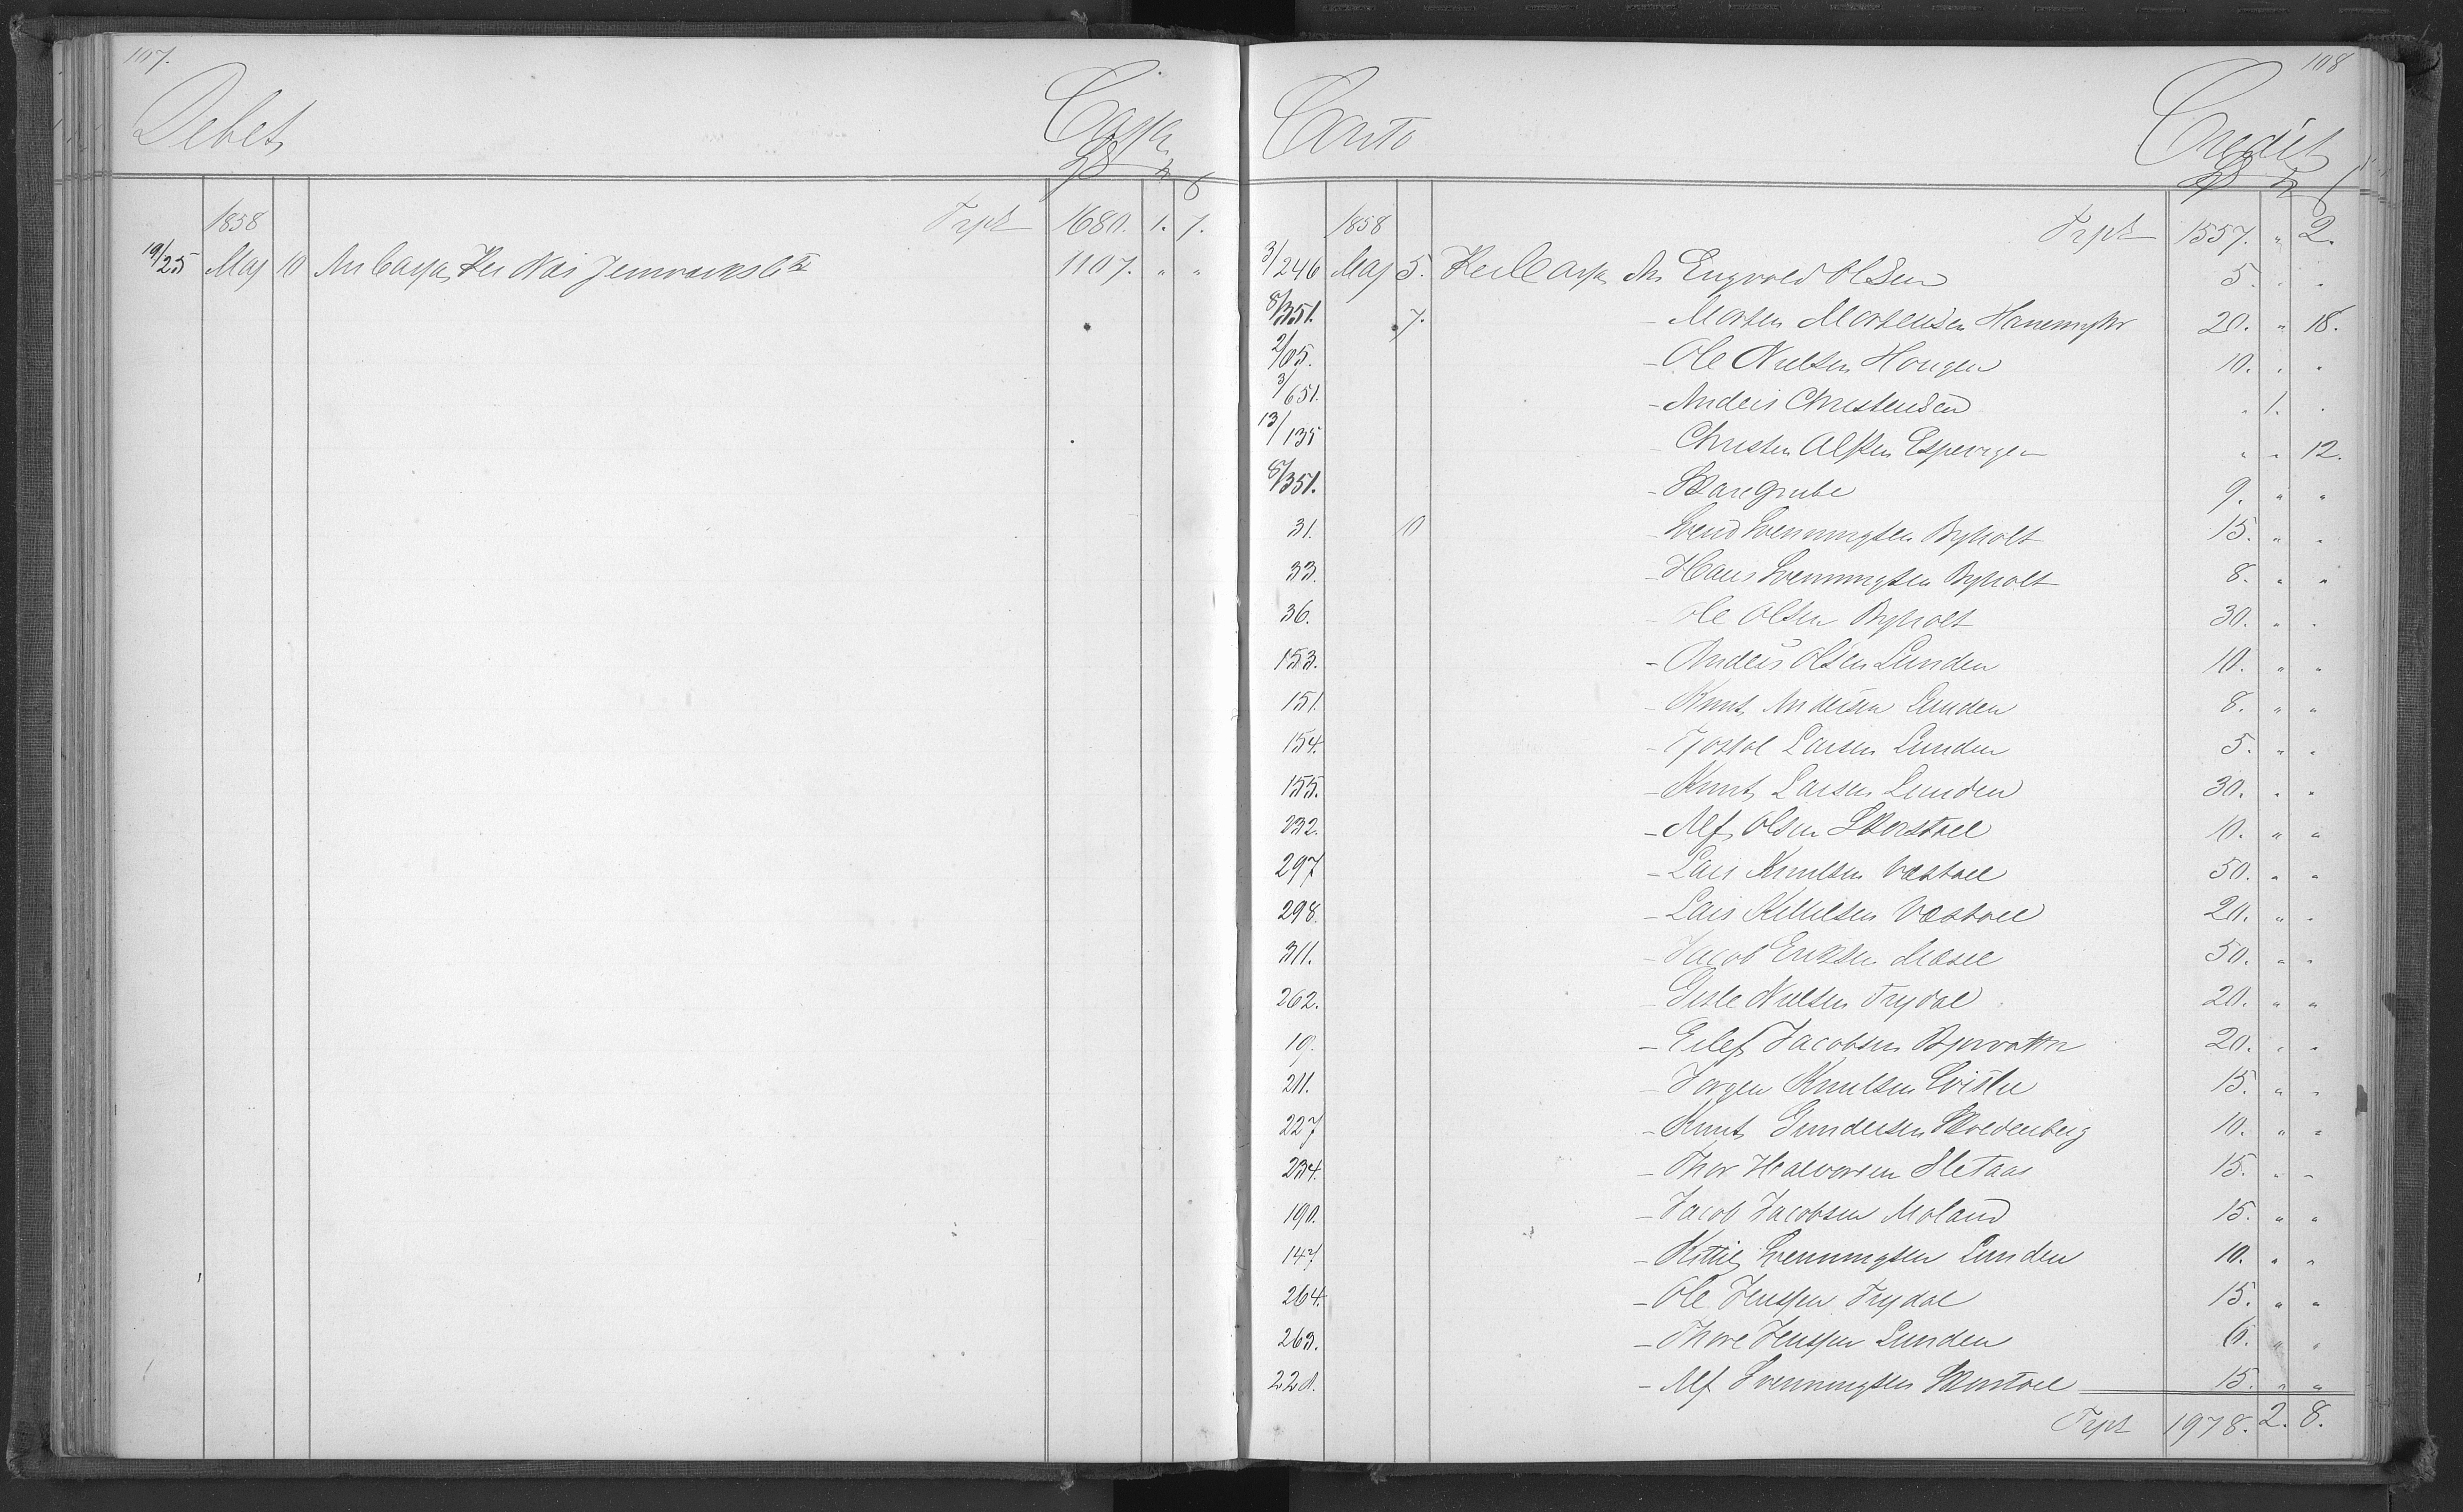 107.
Debet
Cassa
1858 Trpt 1680. 1. 7.
19/25 Maj 10 An Cassa, Per Næs Jernværks 1107. " "
108
Conto
Credit
1858 Trpt 1557. " 2.
3/246 Maj 5. Per Cassa An Engvold Olsen 5. " "
8/351. 7. - Morten Mortensen 20. " 18.
2/05. - Ole Nielsen Hougen 10. " "
3/651. - Anders Christensen " 1. "
13/135 Christen Alfsen Espevigen " " 12.
8/351. - Skare Grube 9. " "
31. 10 - Svend Svenningsen Byholt 15. " "
33. - Hans Svenningsen Byholt 8. " "
36. - Ole Olsen Byholt 30. " "
153. - Anders Olsen Lunden 10. " "
151. - Knut Andersen Lunden 8. " "
154. - Tjostol Larsen Lunden 5. " "
155. - Knut Larsen Lunden 30. " "
232. - Alf Olsen Skorstoel 10. " "
297 - Lars Knutsen Vastoel 50. " "
298. - Lars Kittilsen Vastoel 20. " "
311. - Jacob Eriksen 50. " "
262. - Gisle Nielsen Trydal 20. " "
19. - Eilef Jacobsen Bjorvatn 20. " "
211. - Jorgen Knutsen 15. " "
227 - Knut Gundersen 10. " "
234. - Thor Halvorsen Sletaas 15. " "
190. - Jacob Jacobsen Moland 15. " "
147 - Kittil Svenningsen Lunden 10. " "
264. - Ole Jenssen Trydal 15. " "
263. - Thore Jenssen Lunden 6. " "
228. - Alf Svenningsen 15. " "
Trpt 1978. 2. 8.